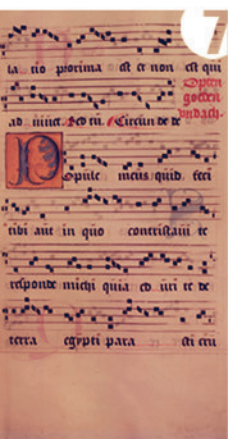 7
la tio proxima est et non est qui
Op den
goeden
vridach.
ad iuuet. Sed tu. Circūn de de
Popule meus quid feci
tibi aut in quo contristaui te
responde michi quia ed uxi te de
terra egypti para sti cru